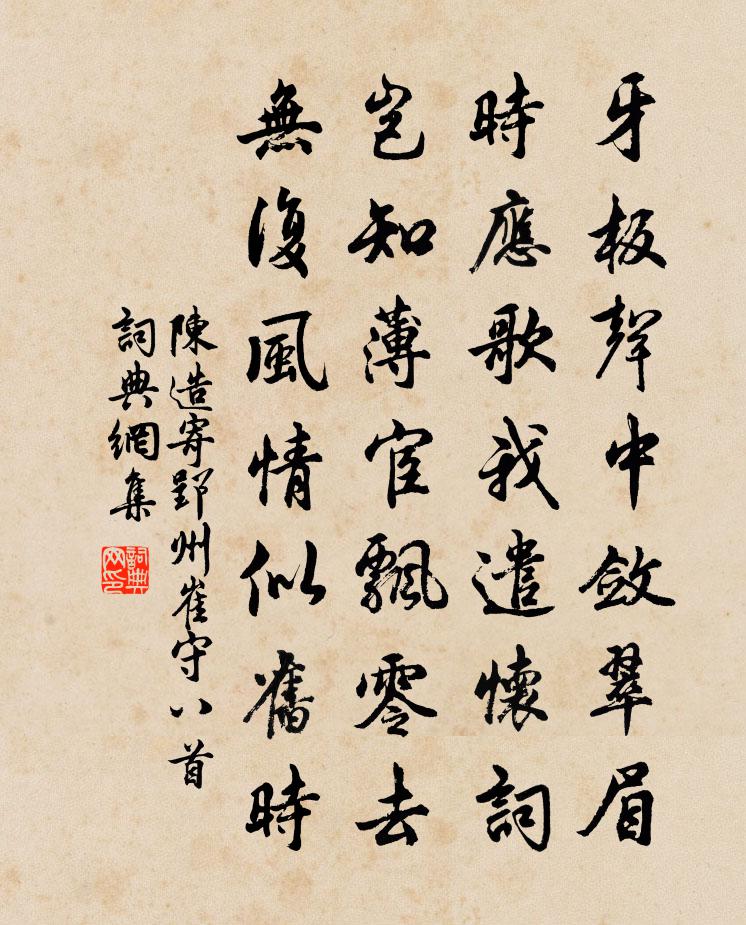 牙板聲中斂翠眉
時應歌我遣懷詞
豈知薄宦飄零去
無復風情似舊時
陳造寄郢州崔守八首
詞典網集
詞典网印